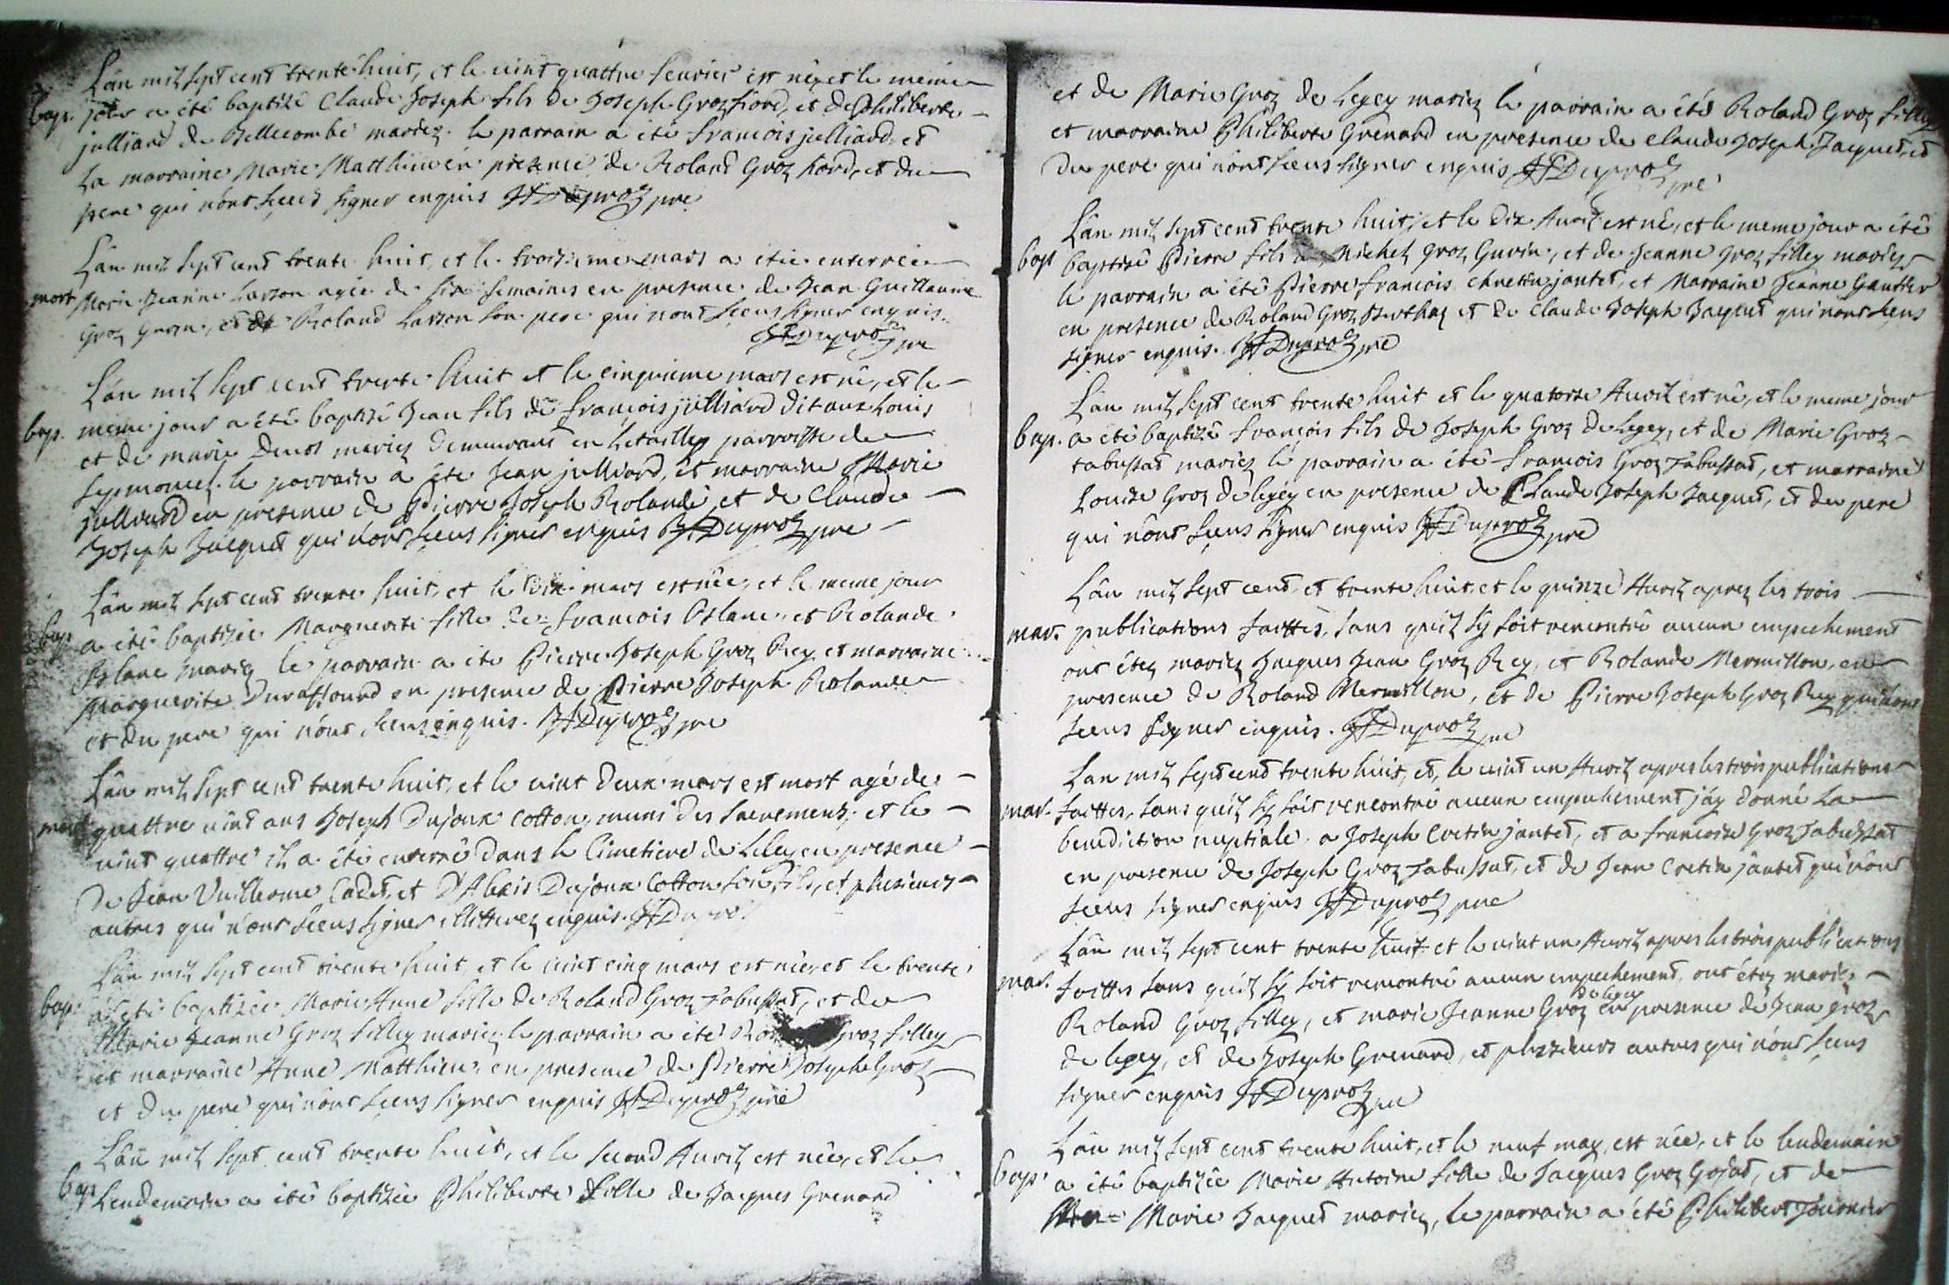 Lân mil sept cent trente huit, et le uint quattre feurier est né, et le meme
bap. jour a été baptizé Claude Joseph fils de Joseph Groz fiord, et de philiberte
julliard de Bellecombe mariez. le parrain a été francois julliard, et
La marraine Marie Matthieu en presence de Roland Groz hord, et du
pere qui n'ont sceus signer enquis Duproz pre
Lân mil sept cent trente huit, et le troisieme mars a étée enterrée
mort Marie Jeanne Larzon agée de six semaines en presence de Jean Guillaume
Groz Gurin, et de Roland Larzon son pere qui n'ont sceus signer enquis.
Duproz pre
Lân mil sept cent trente huit et le cinquieme mars est né, et le
bap. meme jour a été baptizé Jean fils de francois julliard dit aux Louis
et de marie mariez demeurant en parroisse de
septmoncel. le parrain a été Jean julliard, et marraine Marie
julliard en presence de Pierre Joseph Rolandé, et de Claude
Joseph Jacquet qui n'ont sceus signer enquis Duproz pre
Lân mil sept cent trente huit, et le dix mars est née, et le meme jour
bap a été baptizée Marguerite fille de francois Oslane, et Rolande
Oslane mariez le parrain a été Pierre Joseph Groz Rey, et marraine
Marguerite Duraffourd en presence de Pierre Joseph Rolande
et du pere qui n'ont sceus enquis. Duproz pre
Lân mil sept cent trente huit, et le uint deux mars est mort agé de
mort quattre uint ans Joseph Dujoux Cotton, muni des sacremens, et le
uint quattre il a été enterré dans le Cimetiere de en presence
de Jean Vuillerme Cadet, et d'Alexis Dujoux Cotton son fils, et plusieurs
autres qui n'ont sceus signer illitterez enquis. Dupro
Lân mil sept cent trente huit, et le uint cinq mars est née, et le trente
bap. a été baptizée Marie Anne fille de Roland Groz Tabussat, et de
Marie Jeanne Groz filley mariez, le parrain a été Groz filley
et marraine Anne Matthieu, en presence de Pierre Joseph Groz
et du pere qui n'ont sceus signer enquis Duproz pre
Lân mil sept cent trente huit, et le second Auril est née, et le
bap Lendemain a été baptizée Philiberte fille de Jacques Grenard
et de Marie Groz de Lezey mariez le parrain a été Roland Groz filley
et marraine Philiberte Grenard en presence de Claude Joseph Jacquet, et
du pere qui n'ont sceus signer enquis Duproz pre
Lân mil sept cent trente huit, et le dix Auril est né, et le meme jour a été
bap baptizé Pierre fils Michel Groz Gurin, et de Jeanne Groz filley mariez
le parrain a été Pierre francois Cretin jantet, et Marraine Jeanne Gauttier
en presence de Roland Groz Berthaz et de Claude Joseph Jacquet qui n'ont sceus
signer enquis. Duproz pre
Lân mil sept cent trente huit et le quatorze Auril est né, et le meme jour
bap. a été baptizé francois fils de Joseph Groz de Lezey, et de Marie Groz
tabussat mariez le parrain a été francois Groz Tabussat, et marraine
Louise Groz de lezey en presence de Claude Joseph Jacquet, et du pere
qui n'ont sceus signer enquis Duproz pre
Lân mil sept cent, et trente huit, et le quinze Auril aprez les trois
mar. publications faittes, sans qu'il s'y soit rencontré aucun empechement
ont étez mariez Jacques Jean Groz Rey, et Rolande Mermillon, en
presence de Roland Mermillon, et de Pierre Joseph Groz Rey qui n'ont
sceus signer enquis. Duproz pre
Lan mil sept cent trente huit, et, le uint un Auril apres les trois publications
mar. faittes, sans qu'il s'y soit rencontré aucun empechement j'ay donné La
benediction nuptiale a Joseph Cretin jantet, et a francoise Groz Tabussat
en presence de Joseph Groz Tabussat, et de Jean Cretin jantet qui n'ont
sceus signer enquis Duproz pre
Lân mil sept cent trente huit et le uint un Auril apres les trois publications
mar. faittes sans qu'il s'y soit rencontré aucun empechement, ont étez mariez
de lezey
Roland Groz filley, et marie Jeanne Groz en presence de Jean Groz
de lezey, et de Joseph Grenard, et plusieurs autres qui n'ont sceus
signer enquis Duproz pre
Lân mil sept cent trente huit, et le neuf may est née, et le lendemain
bap. a été baptizée Marie Antoine fille de Jacques Groz Gojat, et de
Marie Jacquet mariez, le parrain a été Philibert fournier